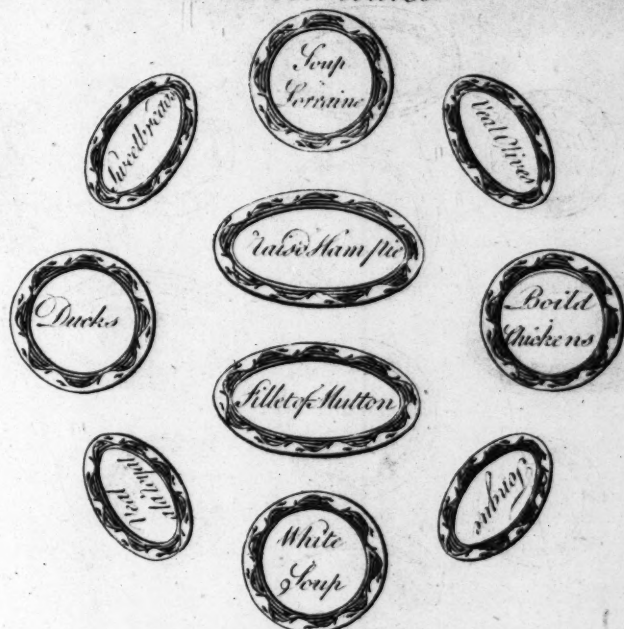 Soup
Lorraine
Sweetbreads
Veal Olives
Raisd Ham pie
Ducks
Boild
Chickens
Fillet of Mutton
Veal
Tongue
White
Soup